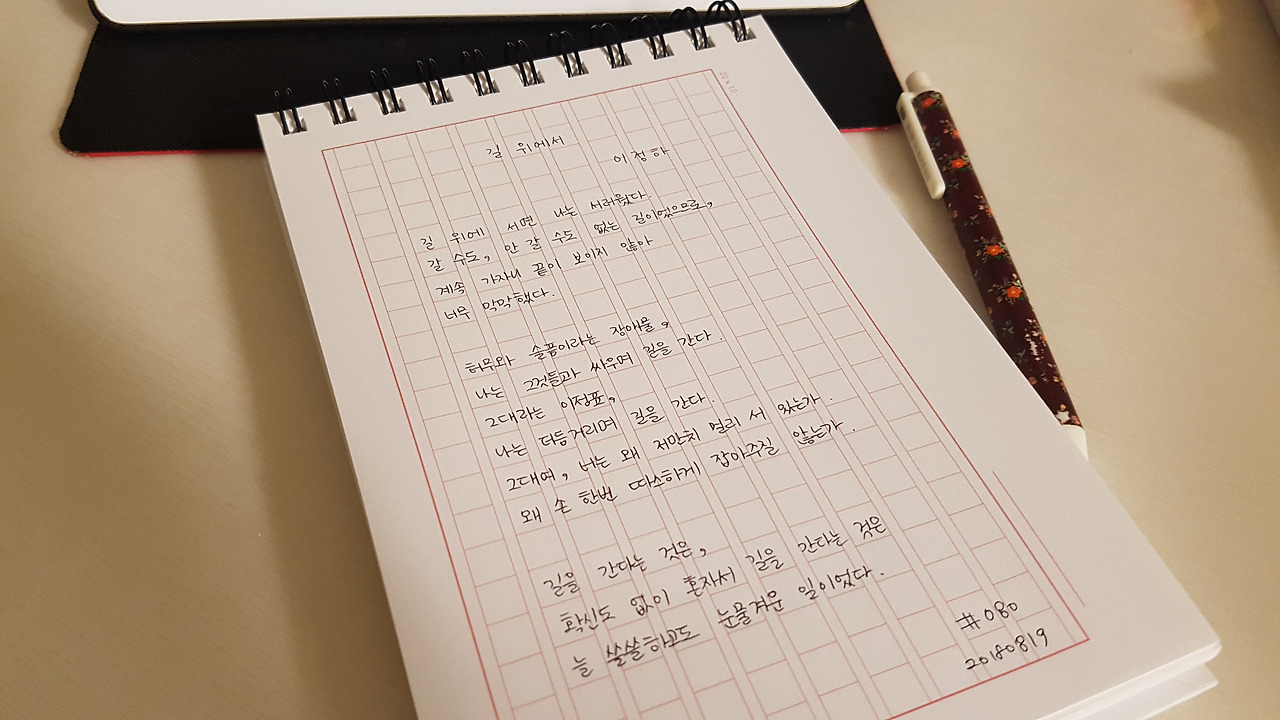 길 위에서
이정하
길 위에 서면 나는 서러웠다.
갈 수도, 안 갈 수도 없는 길이었으므로,
계속 가자니 끝이 보이지 않아
너무 막막했다.
허무와 슬픔이라는 장애물,
나는 그것들과 싸우며 길을 간다.
그대라는 이정표,
나는 더듬거리며 길을 간다.
그대여, 너는 왜 저만치 멀리 서 있는가.
왜 손 한번 따스하게 잡아주질 않는가.
길을 간다는 것은,
확신도 없이 혼자서 길을 간다는 것은
늘 쓸쓸하고도 눈물겨운 일이었다.
#080
20180819